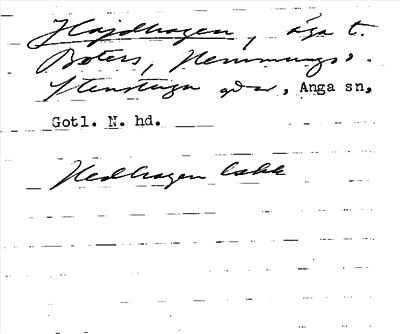 Hajdhagen, äga t.
Boters, Hemmungs,
Stenstugu gdr, Anga sn,
Gotl. N. hd.
Hedhagen